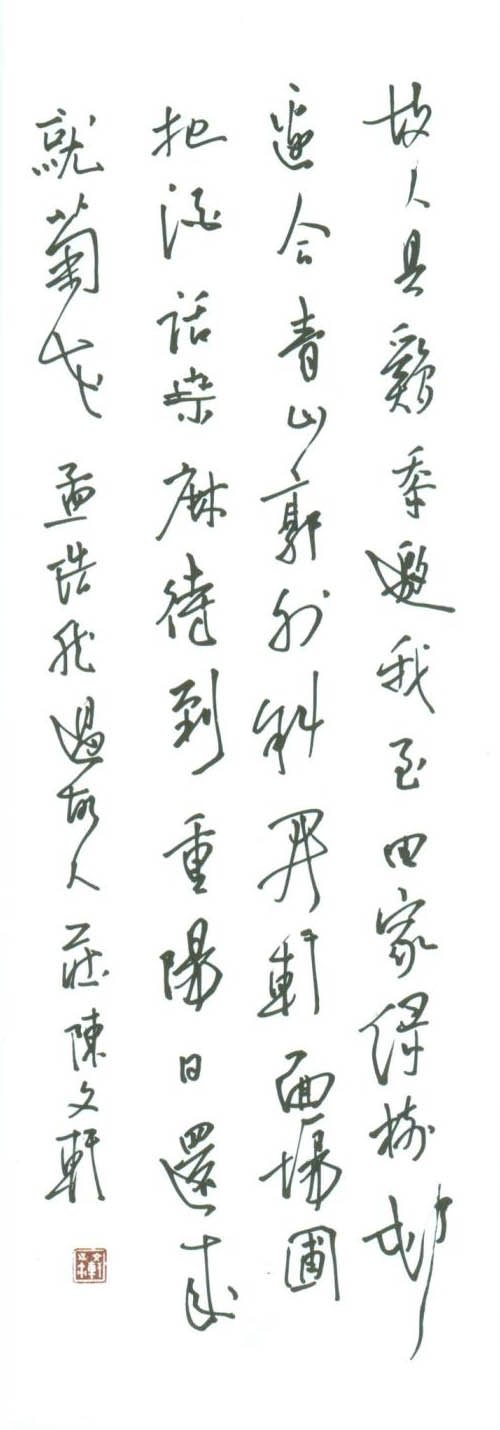 故人具雞黍邀我至田家綠樹邨
邊合青山郭外斜開軒面場圃
把酒話桑麻待到重陽日還來
就菊花 孟浩然過故人莊 陳文軒